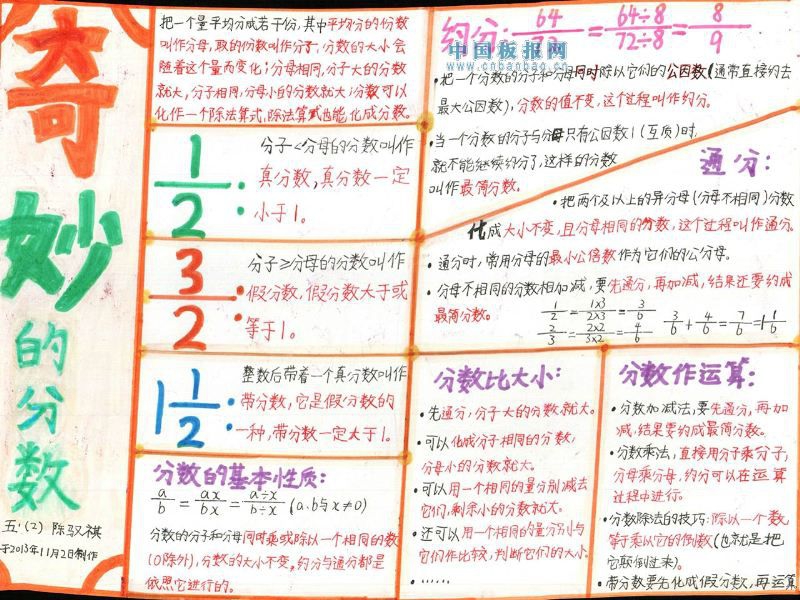 奇妙的分数
五.(2) 陈驭祺
于2013年11月2日制作
把一个量平均分成若干份,其中平均分的份数
叫作分母,取的份数叫作分子,分数的大小会
随着这个量而变化;分母相同,分子大的分数
就大,分子相同,分母小的分数就大;分数可以
化作一个除法算式,除法算式也能化成分数。
1/2:
分子<分母的分数叫作
真分数,真分数一定
小于1。
3/2:
分子≥分母的分数叫作
假分数,假分数大于或
等于1。
1 1/2:
整数后带着一个真分数叫作
带分数,它是假分数的
一种,带分数一定大于1。
分数的基本性质:
a/b = ax/bx = a÷x/b÷x (a、b与x≠0)
分数的分子和分母同时乘或除以一个相同的数
(0除外),分数的大小不变。约分与通分都是
依照它进行的。
约分: 64/72 = 64÷8/72÷8 = 8/9
中国板报网
www.cnbanbao.cn
·把一个分数的分子和分母同时除以它们的公因数(通常直接约去
最大公因数),分数的值不变,这个过程叫作约分。
·当一个分数的分子与分母只有公因数1(互质)时,
就不能继续约分了,这样的分数
叫作最简分数。
通分:
·把两个及以上的异分母(分母不相同)分数
化成大小不变,且分母相同的分数,这个过程叫作通分。
·通分时,常用分母的最小公倍数作为它们的公分母。
·分母不相同的分数相加减,要先通分,再加减,结果还要约成
最简分数。
1/2 = 1×3/2×3 = 3/6
2/3 = 2×2/3×2 = 4/6
3/6 + 4/6 = 7/6 = 1 1/6
分数比大小:
·先通分,分子大的分数就大。
·可以化成分子相同的分数,
分母小的分数就大。
·可以用一个相同的量分别减去
它们,剩余小的分数就大。
·还可以用一个相同的量分别与
它们作比较,判断它们的大小
·……
分数作运算:
·分数加减法,要先通分,再加
减,结果要约成最简分数。
·分数乘法,直接用分子乘分子,
分母乘分母,约分可以在运算
过程中进行。
·分数除法的技巧:除以一个数
等于乘以它的倒数(也就是把
它颠倒过来)。
·带分数要先化成假分数,再运算